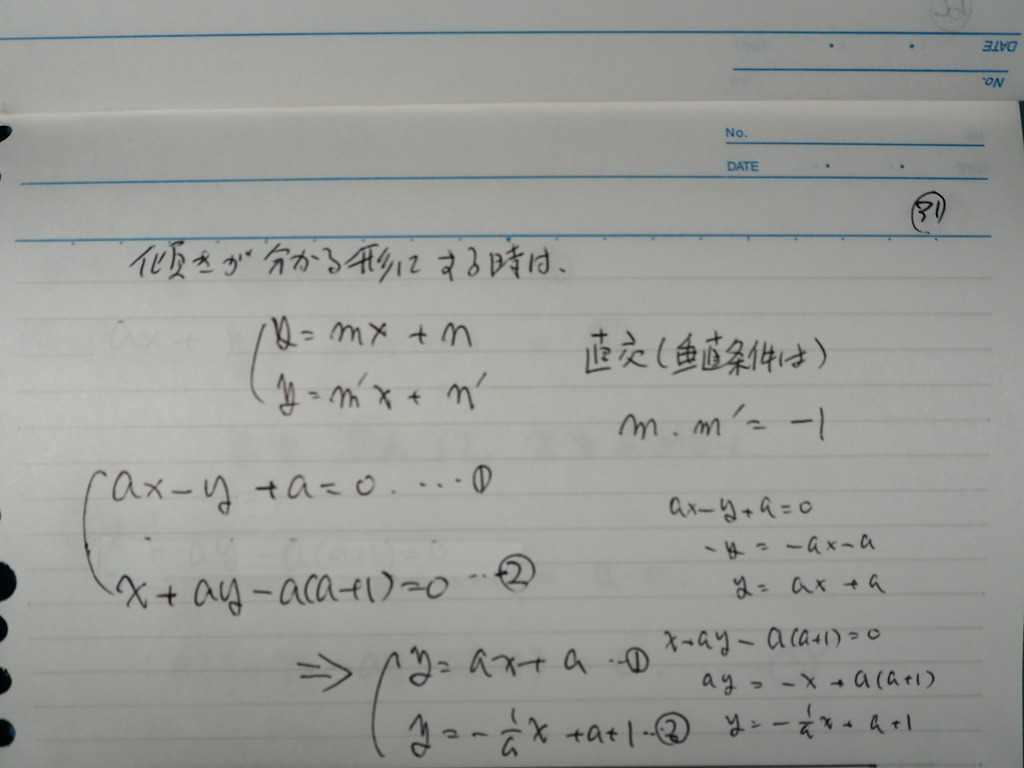 DATE
No.
No.
DATE
31
傾きが分かる形にする時は、
y = mx + n
y = m'x + n'
直交(垂直条件は)
m.m' = -1
ax - y + a = 0. …①
x + ay - a(a+1) = 0 …②
ax - y + a = 0
-y = -ax - a
y = ax + a
x + ay - a(a+1) = 0
ay = -x + a(a+1)
y = -1/a x + a + 1
⇒ y = ax + a …①
y = -1/a x + a + 1 …②